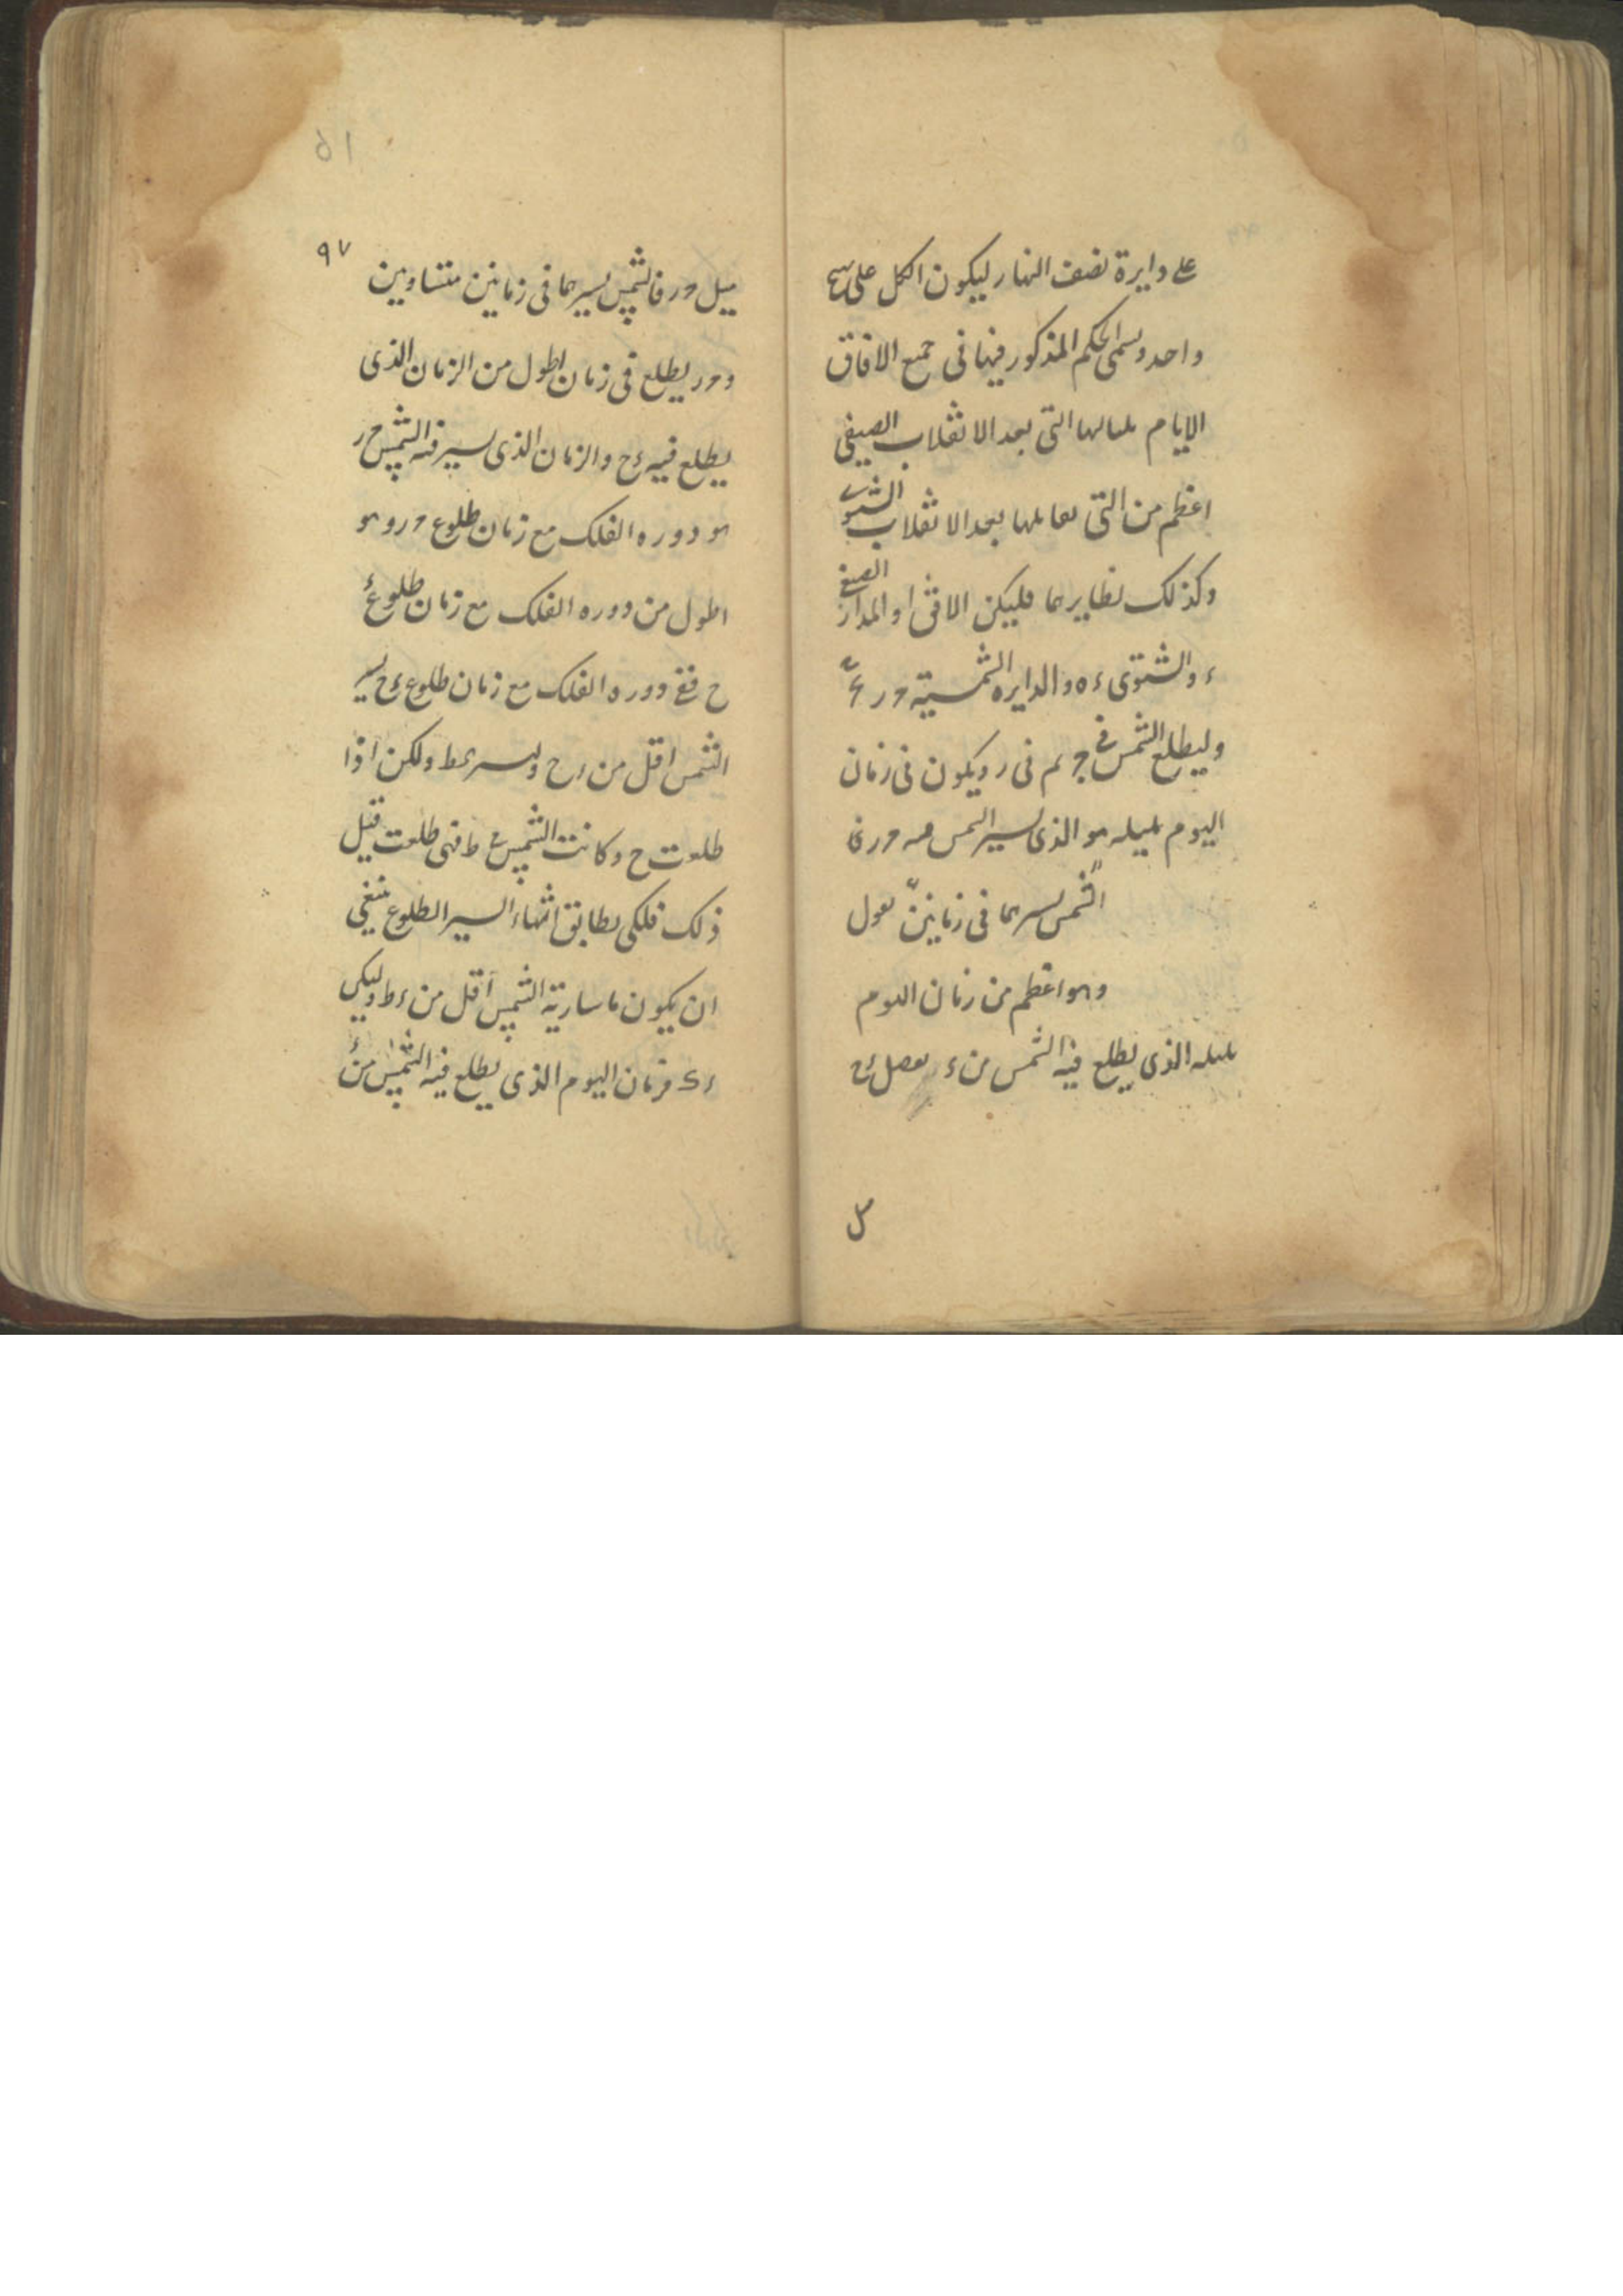 على دايرة نصف النهار ليكون الكل على نهج
واحد ويسمى الحكم المذكور فيها فى جميع الافاق
الايام بلياليها التى بعد الانقلاب الصيفى
اعظم من التى تقابلها بعد الانقلاب الشتوى
وكذلك نظايرها فليكن الافق ا والمدار الصيفى
ء والشتوى ء ه والدايره الشمسية ح ر
وليطلع الشمس فى ح ثم فى ر ويكون فى زمان
اليوم بليله هو الذى يسير الشمس فيه ح ر
الشمس يسيرها فى زمانين نقول
وهو اعظم من زمان اليوم
بليله الذى يطلع فيه الشمس من ء نفصل ء ح
مل
٩٧
ميل ح ر فالشمس يسيرها فى زمانين متساوين
و ح ر يطلع فى زمان اطول من الزمان الذى
يطلع فيه ء ح والزمان الذى يسير فيه الشمس ح ر
هو دوره الفلك مع زمان طلوع ح ر وهو
اطول من دوره الفلك مع زمان طلوع ء
ح ففى دوره الفلك مع زمان طلوع ء ح يسير
الشمس اقل من ء ح وليسر ء ط ولكن اذا
طلعت ح وكانت الشمس على ط فهى طلعت قبل
ذلك فلكى يطابق انتهاء السير الطلوع ينبغى
ان يكون ما سارته الشمس اقل من ء ط وليكن
ء ك فزمان اليوم الذى يطلع فيه الشمس من ء